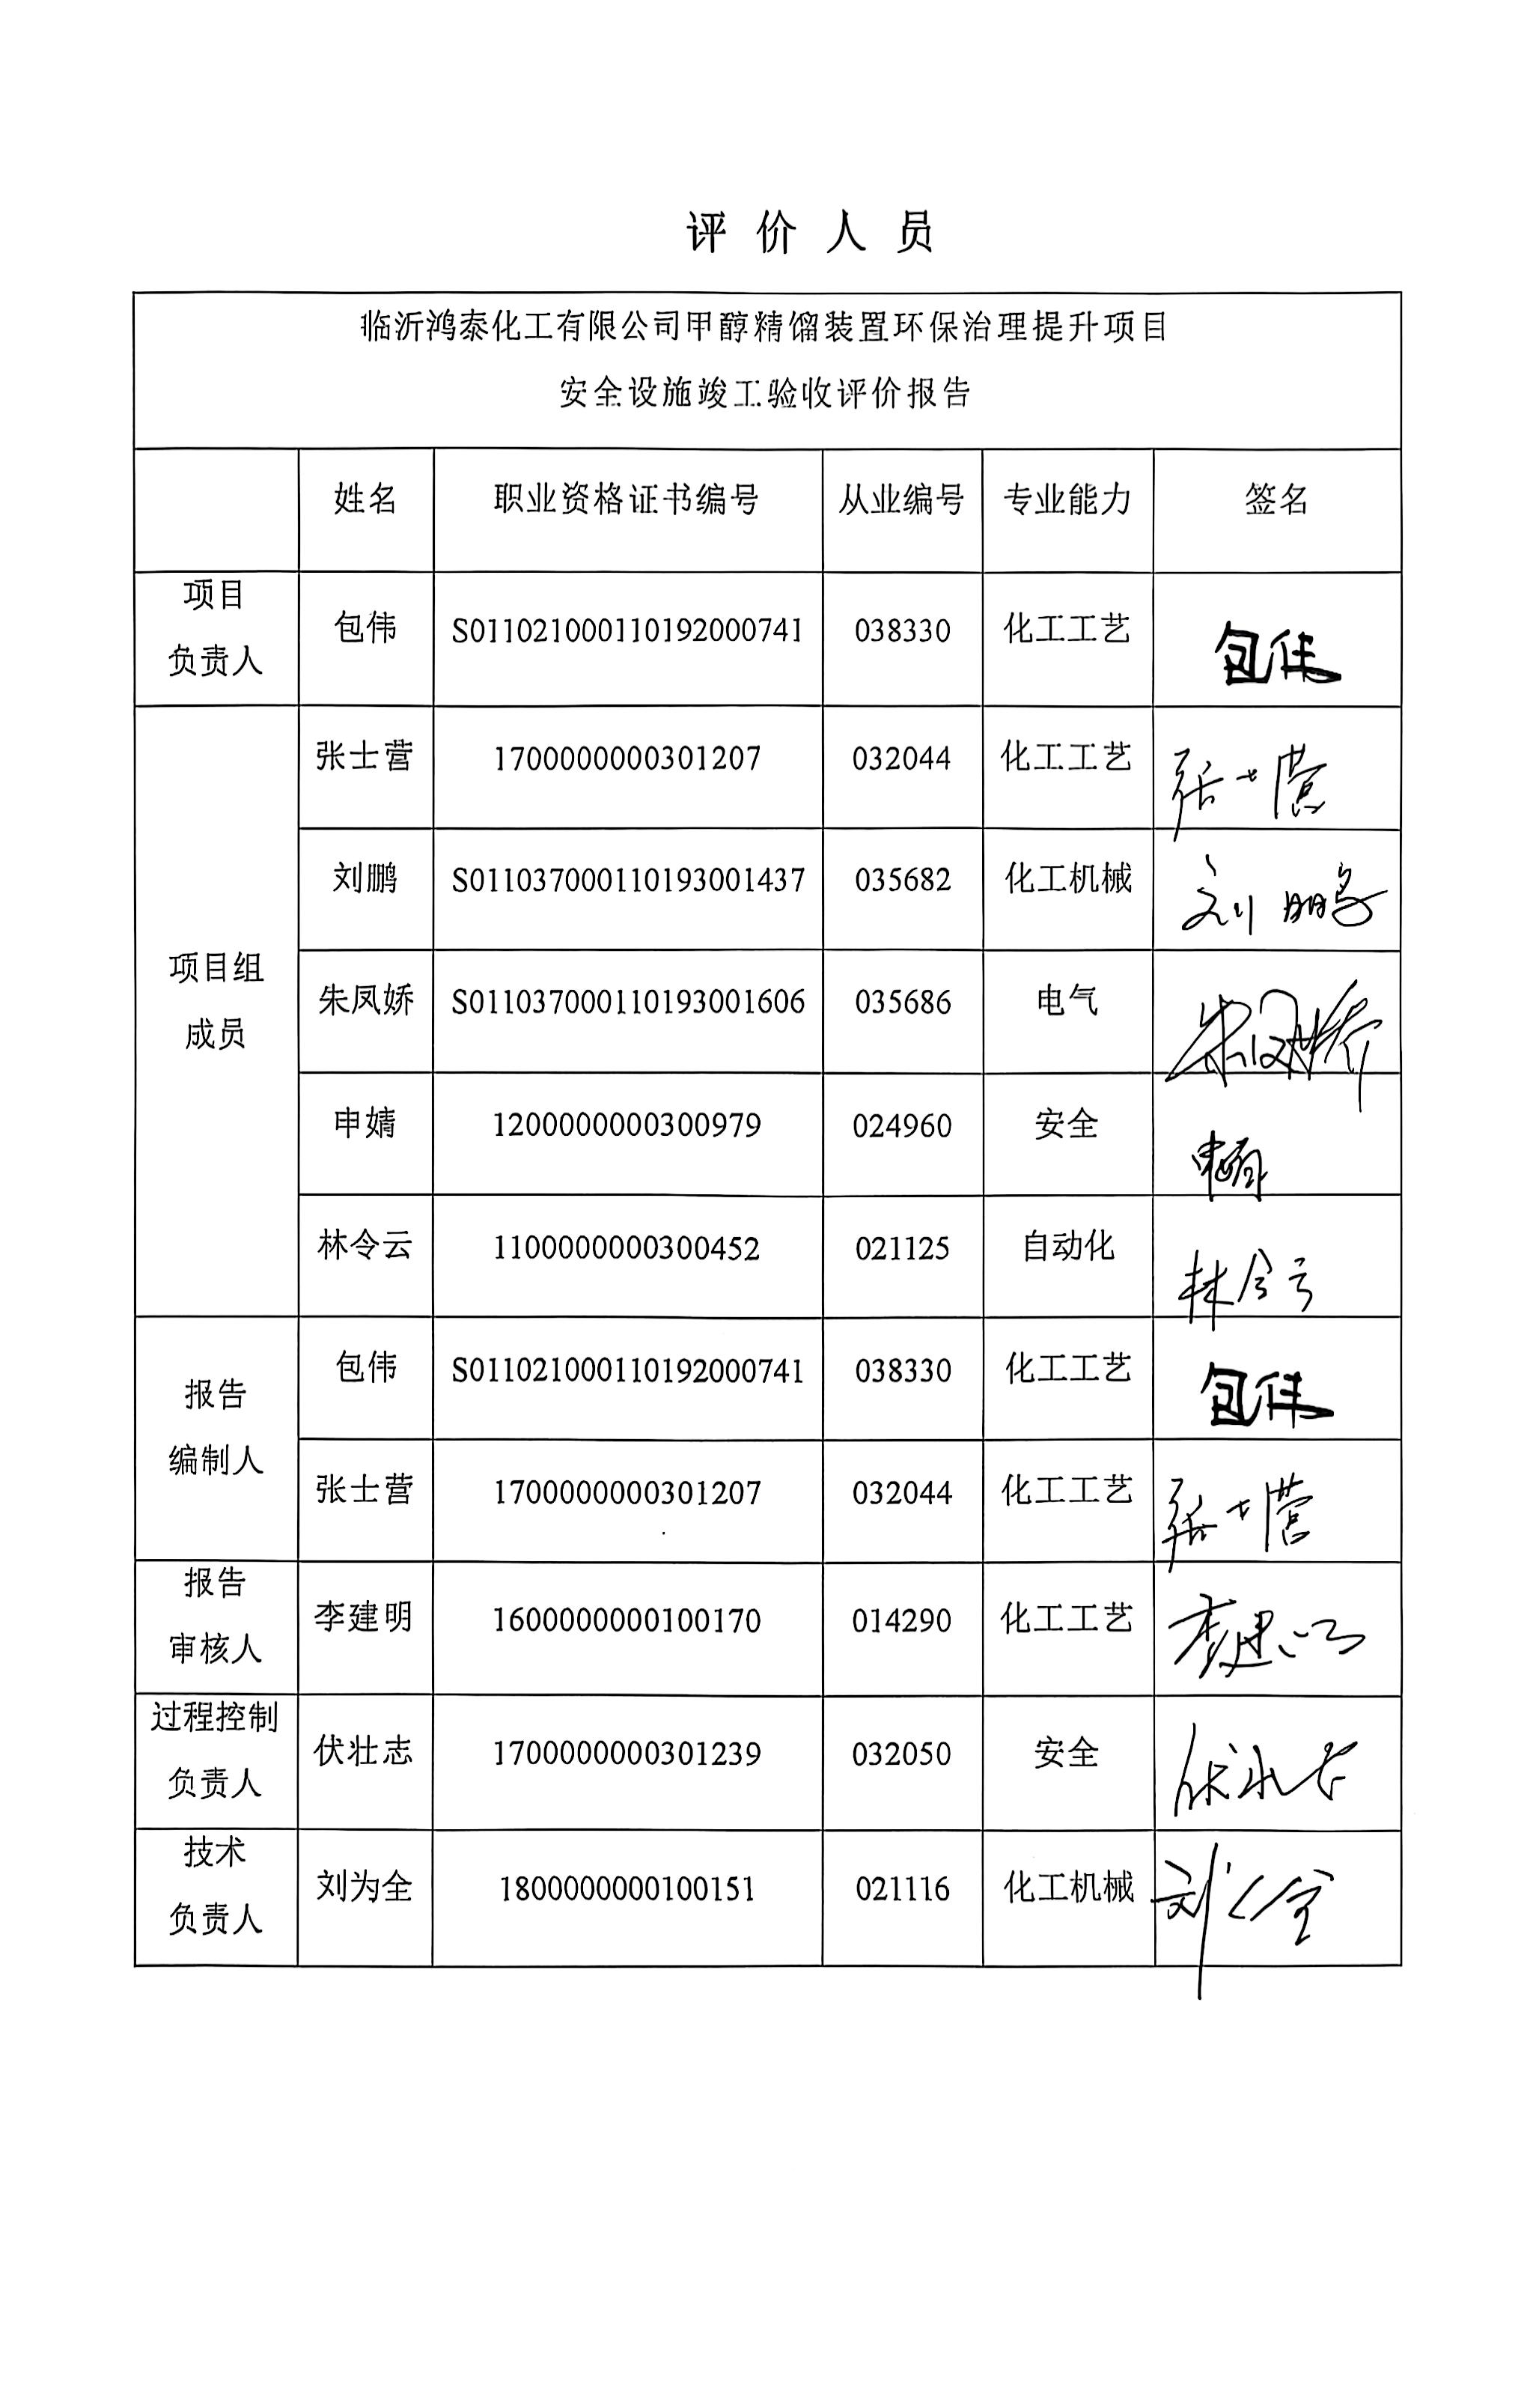 评价人员
临沂鸿泰化工有限公司甲醇精馏装置环保治理提升项目
安全设施竣工验收评价报告
姓名 职业资格证书编号 从业编号 专业能力 签名
项目
负责人
包伟 S011021000110192000741 038330 化工工艺 包伟
项目组
成员
张士营 1700000000301207 032044 化工工艺 张士营
刘鹏 S011037000110193001437 035682 化工机械 刘鹏
朱凤娇 S011037000110193001606 035686 电气 朱凤娇
申婧 1200000000300979 024960 安全 申婧
林令云 1100000000300452 021125 自动化 林令云
报告
编制人
包伟 S011021000110192000741 038330 化工工艺 包伟
张士营 1700000000301207 032044 化工工艺 张士营
报告
审核人
李建明 1600000000100170 014290 化工工艺 李建明
过程控制
负责人
伏壮志 1700000000301239 032050 安全 伏壮志
技术
负责人
刘为全 1800000000100151 021116 化工机械 刘为全